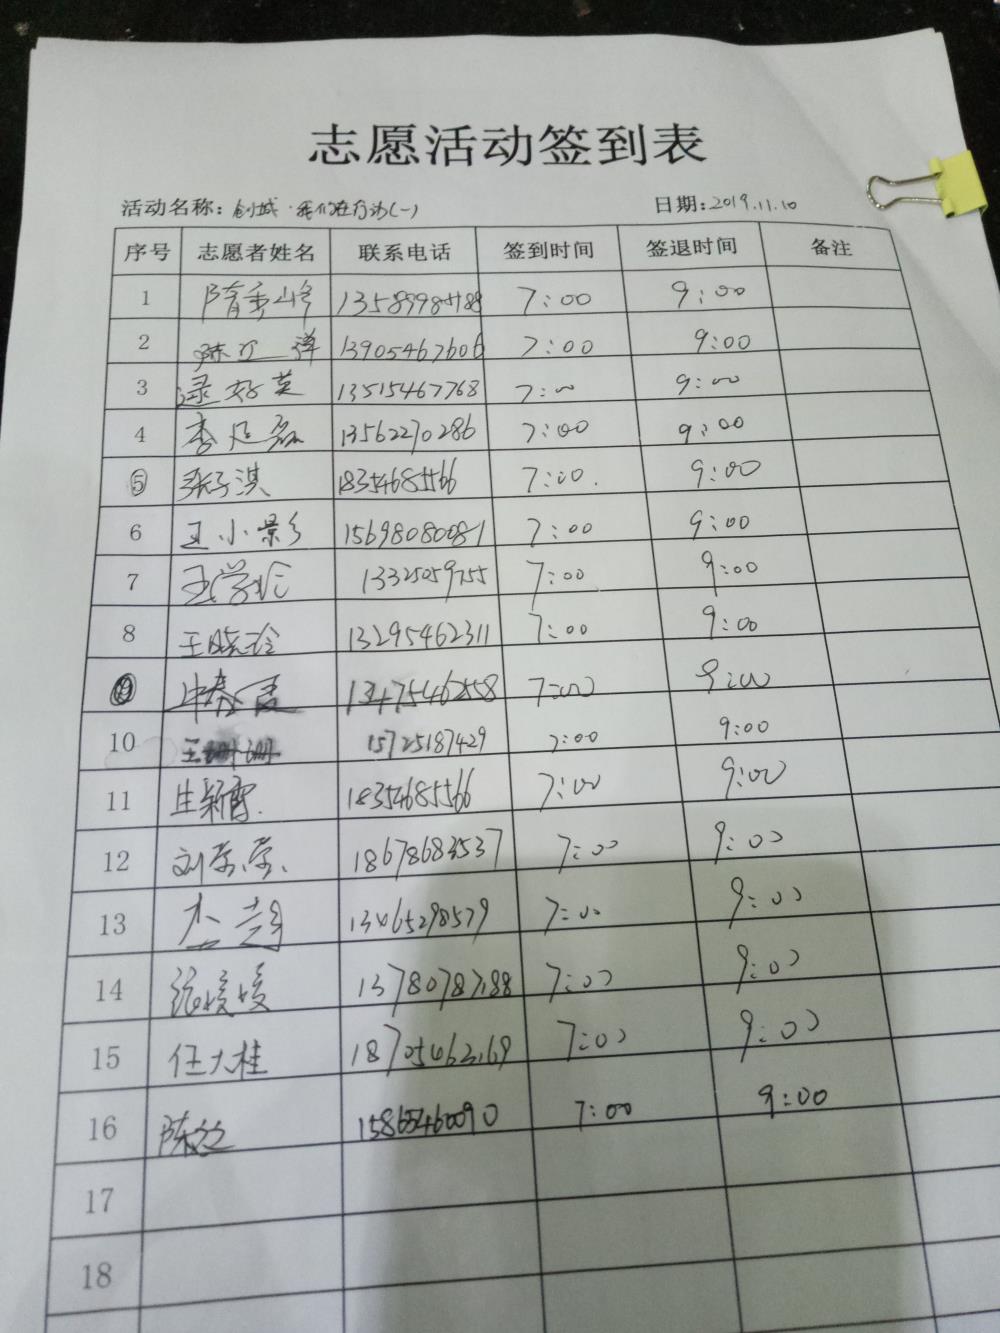 志愿活动签到表
活动名称：创城·我们在行动(一) 日期：2019.11.10
序号 志愿者姓名 联系电话 签到时间 签退时间 备注
1 隋秀峰 7:00 9:00
2 陈 13905467606 7:00 9:00
3 逯好英 13515467768 7:00 9:00
4 李 磊 13562270286 7:00 9:00
5 张子淇 18354685566 7:00. 9:00
6 王小影 15698080081 7:00 9:00
7 王学 13325059755 7:00 9:00
8 王晓玲 13295462311 7:00 9:00
9 13475462558 7:00 9:00
10 王珊珊 15725187429 7:00 9:00
11 生颖雪. 18354685566 7:00 9:00
12 刘荣荣. 18678683537 7:00 9:00
13 13465298579 7:00 9:00
14 张媛媛 13780787188 7:00 9:00
15 任大桂 18705462169 7:00 9:00
16 陈 15865460090 7:00 9:00
17
18